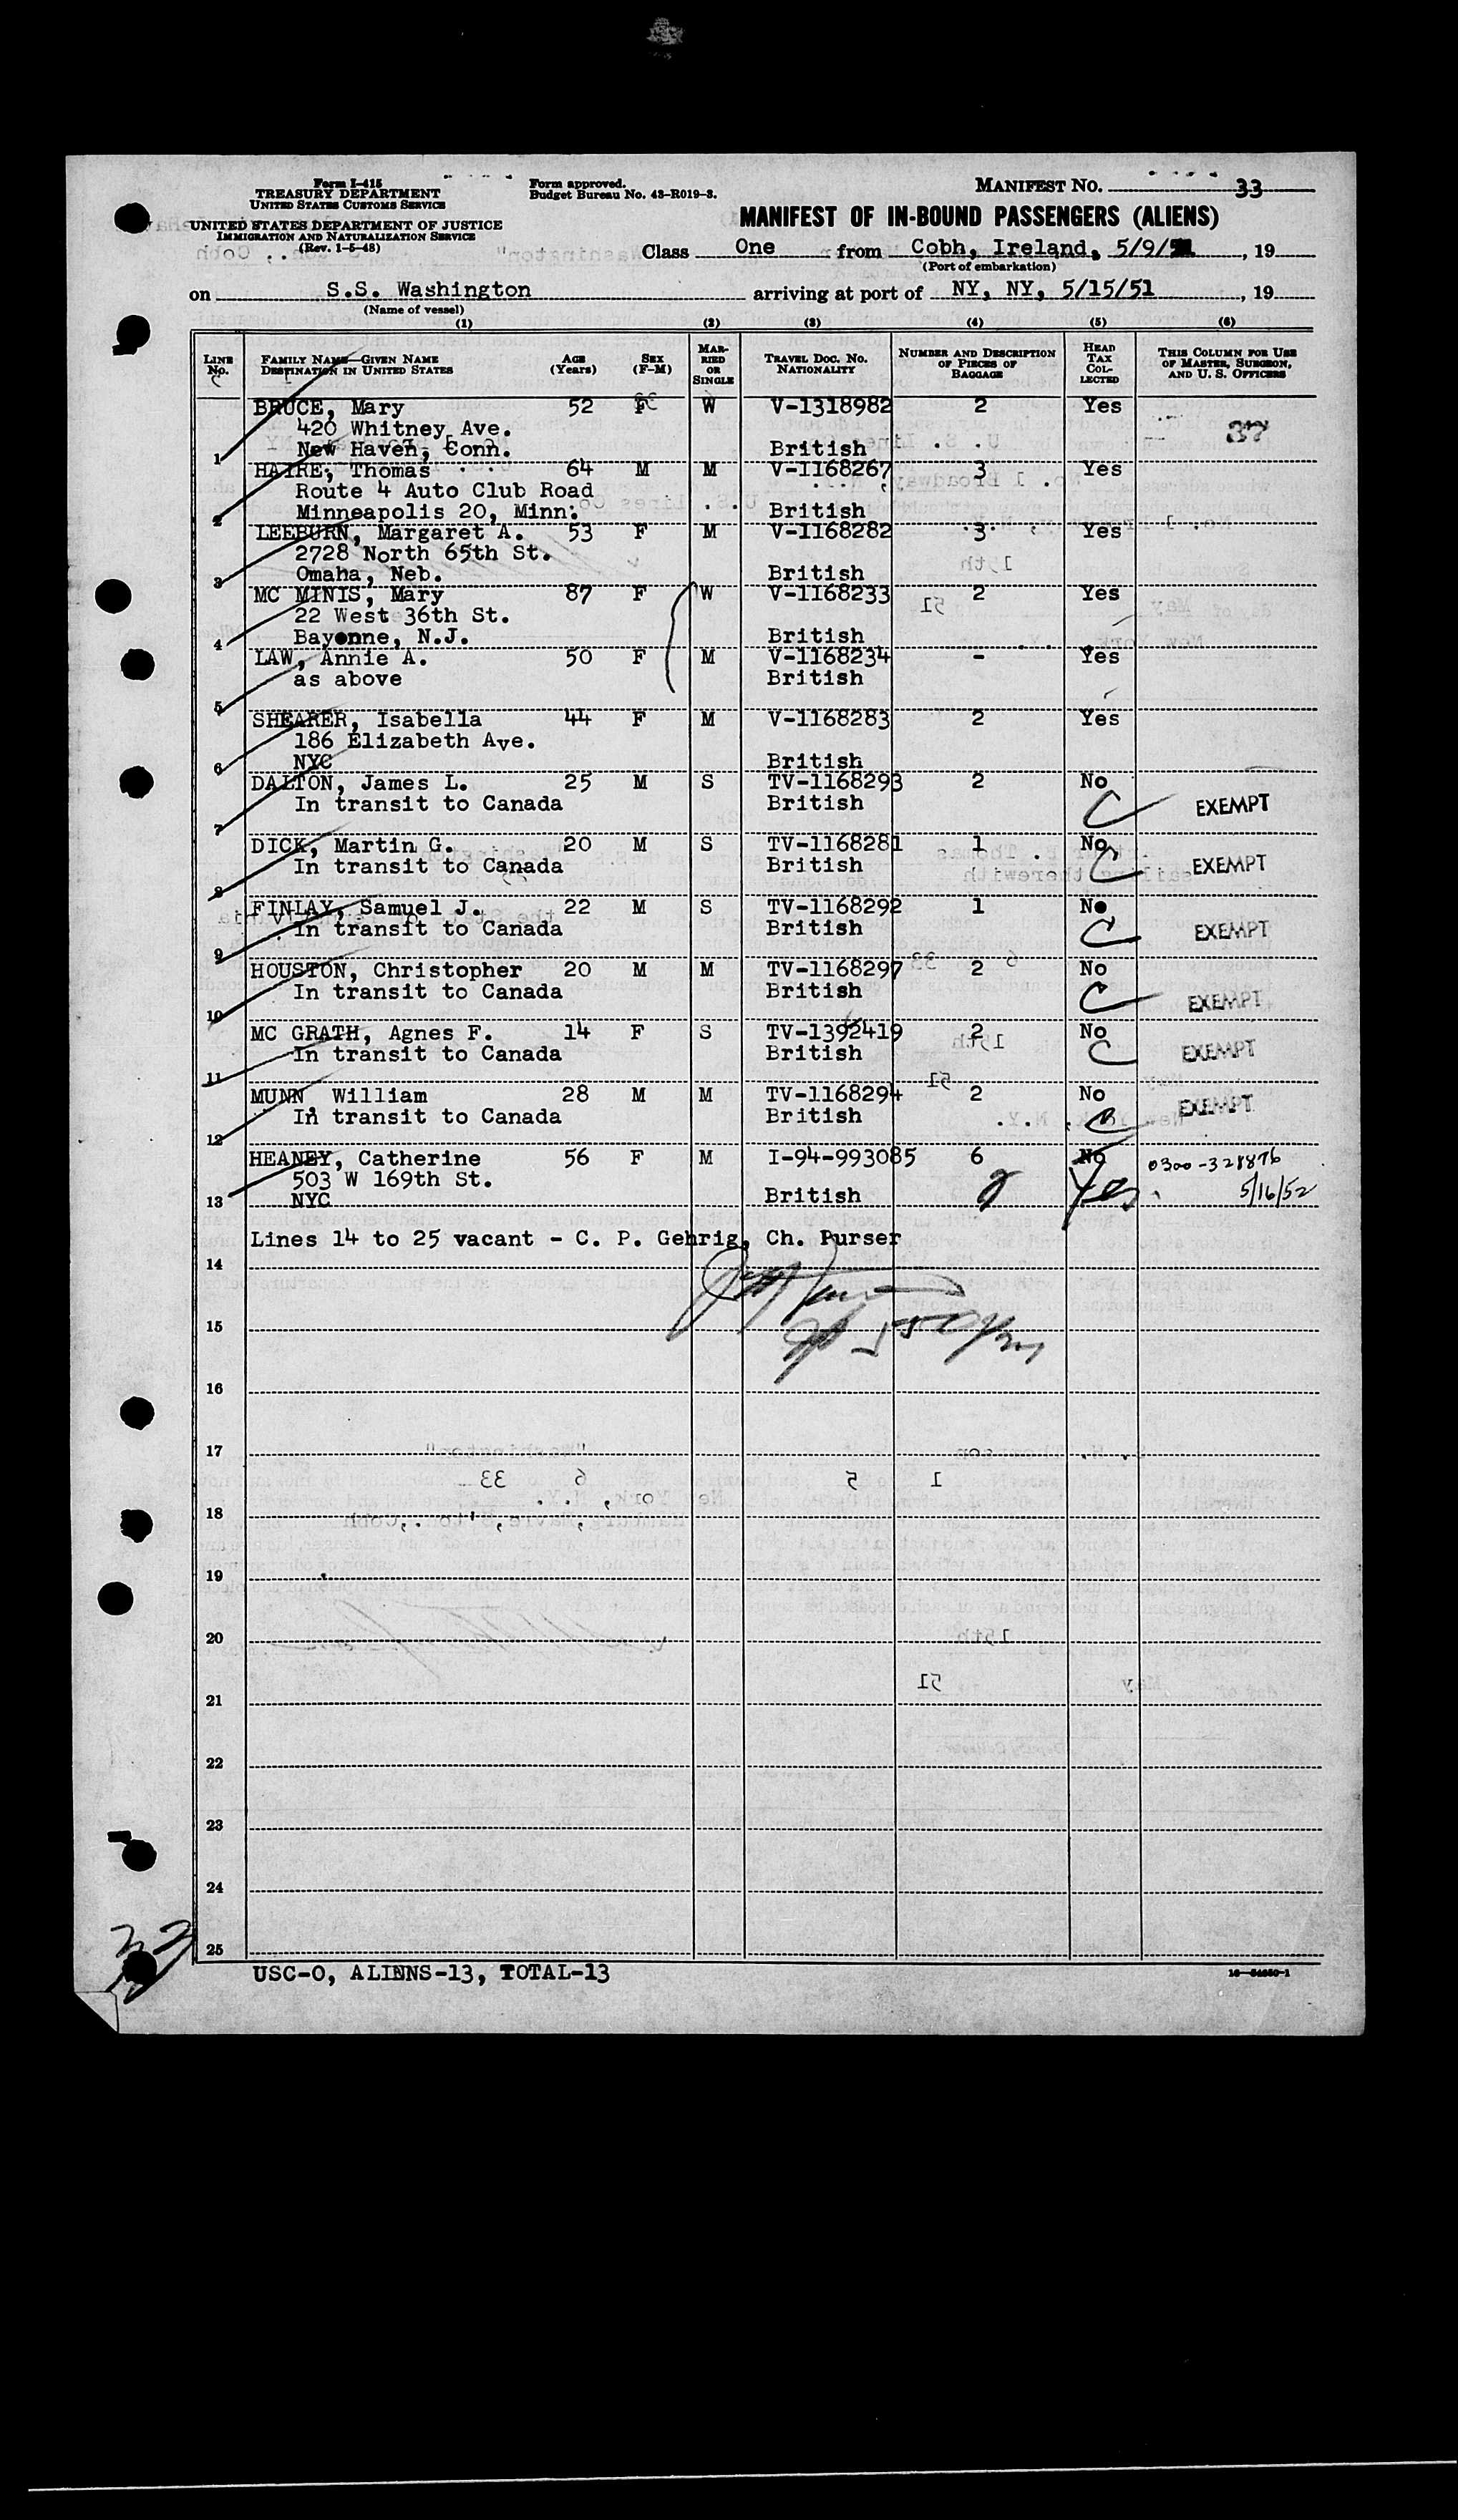 Form I-415
TREASURY DEPARTMENT
UNITED STATES CUSTOMS SERVICE
UNITED STATES DEPARTMENT OF JUSTICE
IMMIGRATION AND NATURALIZATION SERVICE
(Rev. 1-5-48)
Form approved.
Budget Bureau No. 43-R019-3.
MANIFEST NO. 33
MANIFEST OF IN-BOUND PASSENGERS (ALIENS)
Class One from Cobh, Ireland, 5/9/51, 19
(Port of embarkation)
on S.S. Washington arriving at port of NY, NY, 5/15/51, 19
(Name of vessel)
(1) (2) (3) (4) (5) (6)
LINE No. FAMILY NAME—GIVEN NAME DESTINATION IN UNITED STATES AGE (Years) SEX (F-M) MARRIED OR SINGLE TRAVEL DOC. NO. NATIONALITY NUMBER AND DESCRIPTION OF PIECES OF BAGGAGE HEAD TAX COLLECTED THIS COLUMN FOR USE OF MASTER, SURGEON, AND U. S. OFFICERS
BRUCE, Mary 52 F W V-1318982 2 Yes
420 Whitney Ave. 37
1 New Haven, Conn. British
HAIRE, Thomas 64 M M V-1168267 3 Yes
Route 4 Auto Club Road
2 Minneapolis 20, Minn. British
LEEBURN, Margaret A. 53 F M V-1168282 3 Yes
2728 North 65th St.
3 Omaha, Neb. British
MC MINIS, Mary 87 F W V-1168233 2 Yes
22 West 36th St.
4 Bayonne, N.J. British
LAW, Annie A. 50 F M V-1168234 - Yes
as above British
5
SHEARER, Isabella 44 F M V-1168283 2 Yes
186 Elizabeth Ave.
6 NYC British
DALTON, James L. 25 M S TV-1168293 2 No
In transit to Canada British C EXEMPT
7
DICK, Martin G. 20 M S TV-1168281 1 No
In transit to Canada British C EXEMPT
8
FINLAY, Samuel J. 22 M S TV-1168292 1 No
In transit to Canada British C EXEMPT
9
HOUSTON, Christopher 20 M M TV-1168297 2 No
In transit to Canada British C EXEMPT
10
MC GRATH, Agnes F. 14 F S TV-1392419 2 No
In transit to Canada British C EXEMPT
11
MUNN William 28 M M TV-1168294 2 No
In transit to Canada British C EXEMPT
12
HEANEY, Catherine 56 F M I-94-993085 6 No 0300-328876
503 W 169th St. Yes 5/16/52
13 NYC British
Lines 14 to 25 vacant - C. P. Gehrig, Ch. Purser
14
15
16
17
18
19
20
21
22
23
24
25
33
USC-0, ALIENS-13, TOTAL-13